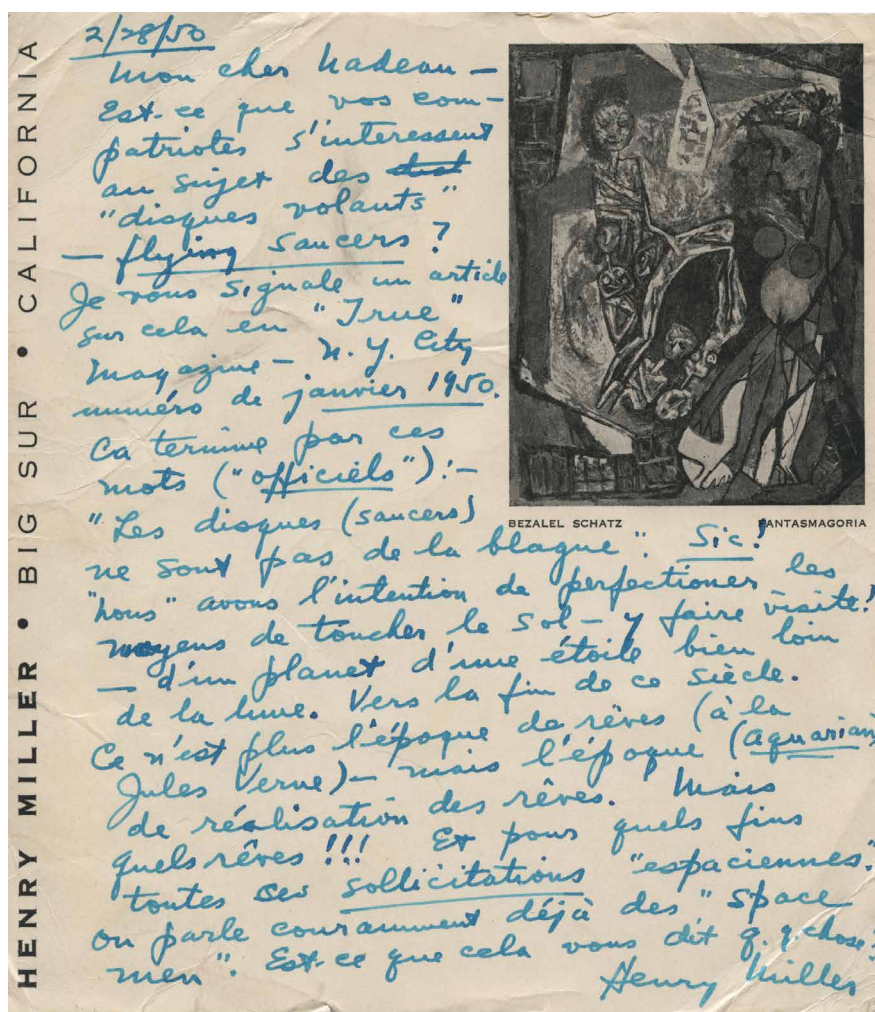 2/28/50
Mon cher Nadeau —
Est-ce que vos com-
patriotes s'interessent
au sujet des
"disques volants"
— flying saucers?
Je vous signale un article
sur cela en "True"
Magazine — N.Y. City
numéro de janvier 1950.
Ca termine par ces
mots ("officiels"):—
"Les disques (saucers)
ne sont pas de la blague". Sic!
"Nous" avons l'intention de perfectioner les
moyens de toucher le sol — y faire visite!
— d'un planet d'une étoile bien loin
de la lune. Vers la fin de ce siècle.
Ce n'est plus l'époque de rêves (à la
Jules Verne) — mais l'époque (aquarian)
de réalisation des rêves. Mais
quels rêves!!! Et pour quels fins
toutes ces sollicitations "espaciennes."
On parle couramment déjà des "space
men". Est-ce que cela vous dit q.q. chose?
Henry Miller
BEZALEL SCHATZ
FANTASMAGORIA
HENRY MILLER • BIG SUR • CALIFORNIA